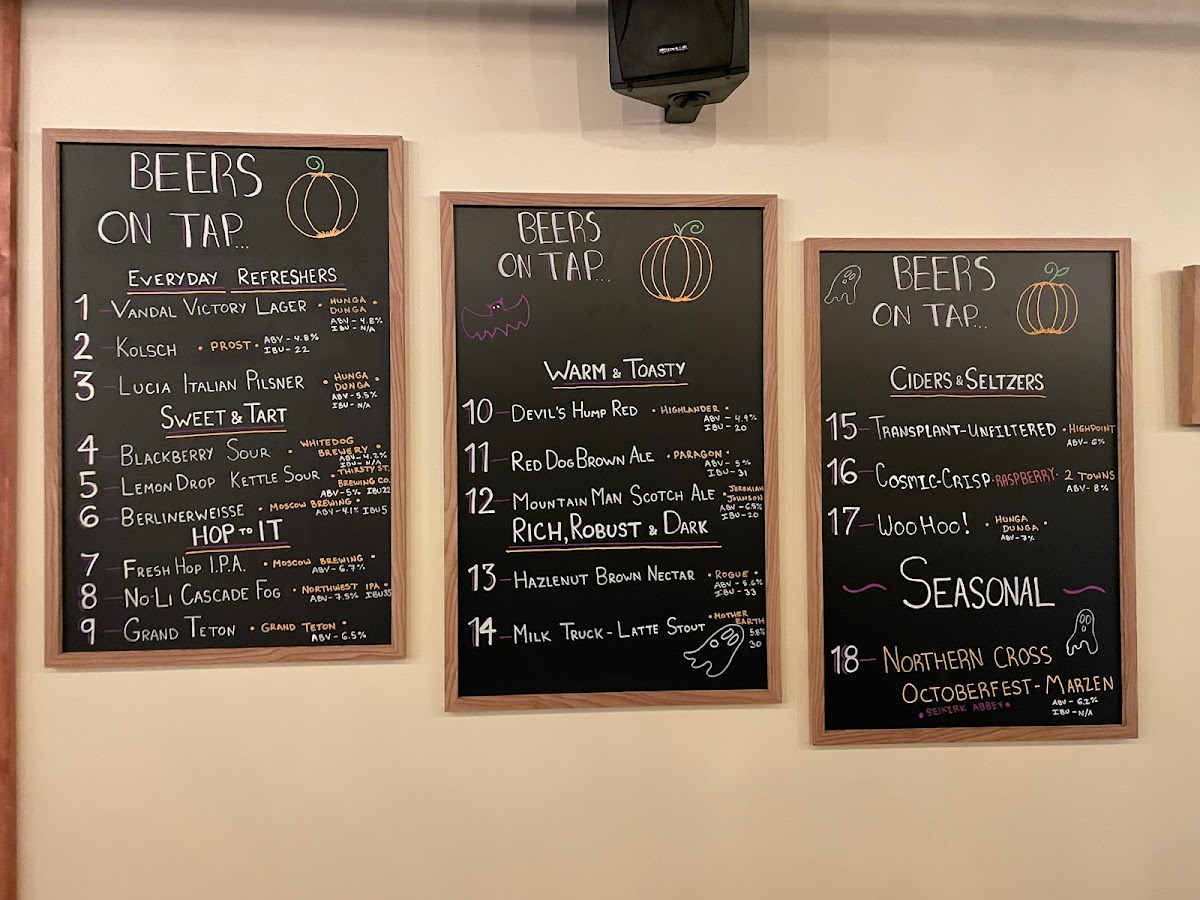 BEERS
ON TAP...
EVERYDAY REFRESHERS
1 - VANDAL VICTORY LAGER • HUNGA DUNGA • ABV - 4.8% IBU - N/A
2 - KOLSCH • PROST • ABV - 4.8% IBU - 22
3 - LUCIA ITALIAN PILSNER • HUNGA DUNGA • ABV - 5.5% IBU - N/A
SWEET & TART
4 - BLACKBERRY SOUR • WHITEDOG BREWERY • ABV - 4.2% IBU - N/A
5 - LEMON DROP KETTLE SOUR • THIRSTY ST. BREWING CO. ABV - 5% IBU 22
6 - BERLINERWEISSE • MOSCOW BREWING • ABV - 4.1% IBU 5
HOP TO IT
7 - FRESH HOP I.P.A. • MOSCOW BREWING • ABV - 6.7%
8 - NO-LI CASCADE FOG • NORTHWEST IPA • ABV - 7.5% IBU 35
9 - GRAND TETON • GRAND TETON • ABV - 6.5%
BEERS
ON TAP...
WARM & TOASTY
10 - DEVIL'S HUMP RED • HIGHLANDER • ABV - 4.9% IBU - 20
11 - RED DOG BROWN ALE • PARAGON • ABV - 5% IBU - 31
12 - MOUNTAIN MAN SCOTCH ALE • JEREMIAH JOHNSON ABV - 6.5% IBU - 20
RICH, ROBUST & DARK
13 - HAZLENUT BROWN NECTAR • ROGUE • ABV - 5.6% IBU - 33
14 - MILK TRUCK - LATTE STOUT • MOTHER EARTH 5.8% 30
BEERS
ON TAP...
CIDERS & SELTZERS
15 - TRANSPLANT-UNFILTERED • HIGHPOINT ABV - 6%
16 - COSMIC-CRISP • RASPBERRY • 2 TOWNS ABV - 8%
17 - WOO HOO! • HUNGA DUNGA • ABV - 7%
SEASONAL
18 - NORTHERN CROSS
OCTOBERFEST - MARZEN
• SELKIRK ABBEY • ABV - 6.2% IBU - N/A